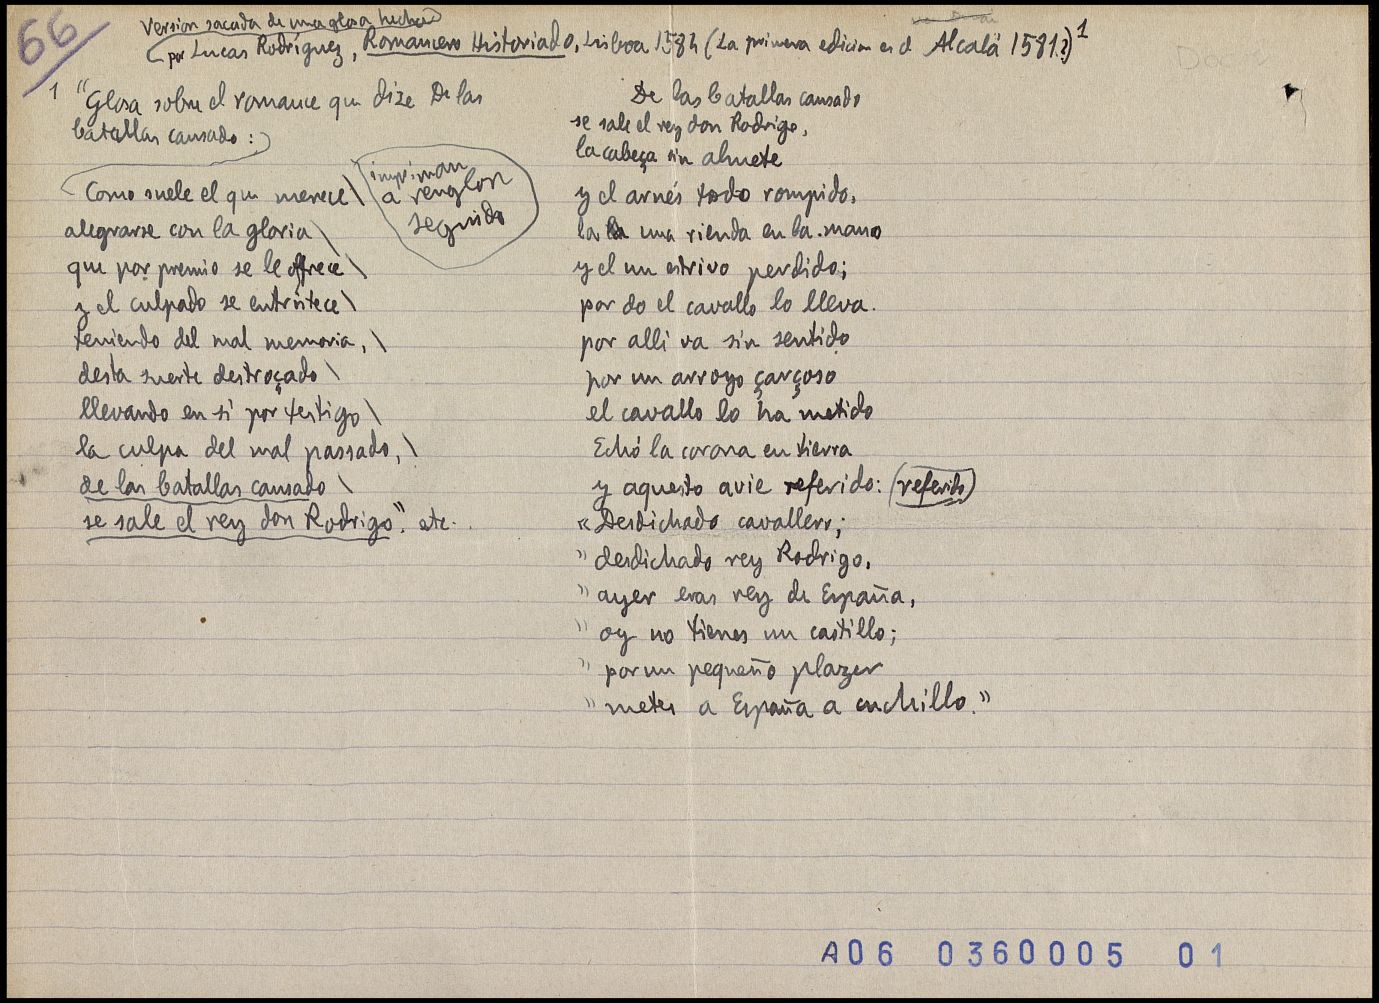 66
Version sacada de una glosa hecha
por Lucas Rodríguez, Romancero Historiado, Lisboa 1584 (La primera edicion es el Alcalá 1581?)¹
1 "Glosa sobre el romance que dize De las
batallas cansado:
impriman
a renglon
seguido
Como suele el que merece \
alegrarse con la gloria \
que por premio se le offrece \
y el culpado se entristece \
teniendo del mal memoria, \
desta suerte destroçado \
llevando en sí por testigo \
la culpa del mal passado, \
de las batallas cansado \
se sale el rey don Rodrigo". etc.
De las batallas cansado
se sale el rey don Rodrigo,
la cabeça sin almete
y el arnés todo rompido,
la una rienda en la mano
y el un estrivo perdido;
por do el cavallo lo lleva.
por alli va sin sentido
por un arroyo çarçoso
el cavallo lo ha metido
Echó la corona en tierra
y aquesto avie referido: (referido)
« Desdichado cavallero;
" desdichado rey Rodrigo,
" ayer eras rey de España,
" oy no tienes un castillo;
" por un pequeño plazer
" metes a España a cuchillo."
A06 0360005 01